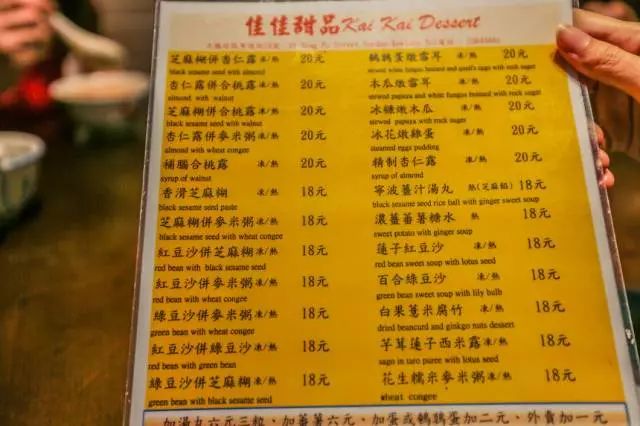 佳佳甜品 Kai Kai Dessert
芝麻糊併杏仁露 凍/熱 20元
black sesame seed with almond
杏仁露併合桃露 凍/熱 20元
almond with walnut
芝麻糊併合桃露 凍/熱 20元
black sesame seed with walnut
杏仁露併麥米粥 凍/熱 20元
almond with wheat congee
補腦合桃露 凍/熱 20元
syrup of walnut
香滑芝麻糊 凍/熱 18元
black sesame seed paste
芝麻糊併麥米粥 凍/熱 18元
black sesame seed with wheat congee
紅豆沙併芝麻糊 凍/熱 18元
red bean with black sesame seed
紅豆沙併麥米粥 凍/熱 18元
red bean with wheat congee
綠豆沙併麥米粥 凍/熱 18元
green bean with wheat congee
紅豆沙併綠豆沙 凍/熱 18元
red bean with green bean
綠豆沙併芝麻糊 凍/熱 18元
green bean with black sesame seed
鵪鶉蛋燉雪耳 凍/熱 20元
stewed white fungus instant and quail's eggs with rock sugar
木瓜燉雪耳 凍/熱 20元
stewed papaya and white fungus instant with rock sugar
冰糖燉木瓜 凍/熱 20元
stewed papaya with rock sugar
冰花燉雞蛋 凍/熱 20元
steamed eggs pudding
精制杏仁露 凍/熱 20元
syrup of almond
寧波薑汁湯丸 熱(芝麻餡) 18元
black sesame seed rice ball with ginger sweet soup
濃薑蕃薯糖水 熱 18元
sweet potato with ginger soup
蓮子紅豆沙 凍/熱 18元
red bean sweet soup with lotus seed
百合綠豆沙 凍/熱 18元
green bean sweet soup with lily bulb
白果薏米腐竹 凍/熱 18元
dried beancurd and ginkgo nuts dessert
芋茸蓮子西米露 凍/熱 18元
sago in taro puree with lotus seed
花生糯米麥米粥 凍/熱 18元
wheat congee
加湯丸六元三粒、加蕃薯六元、加蛋或鵪鶉蛋加二元、外賣加一元